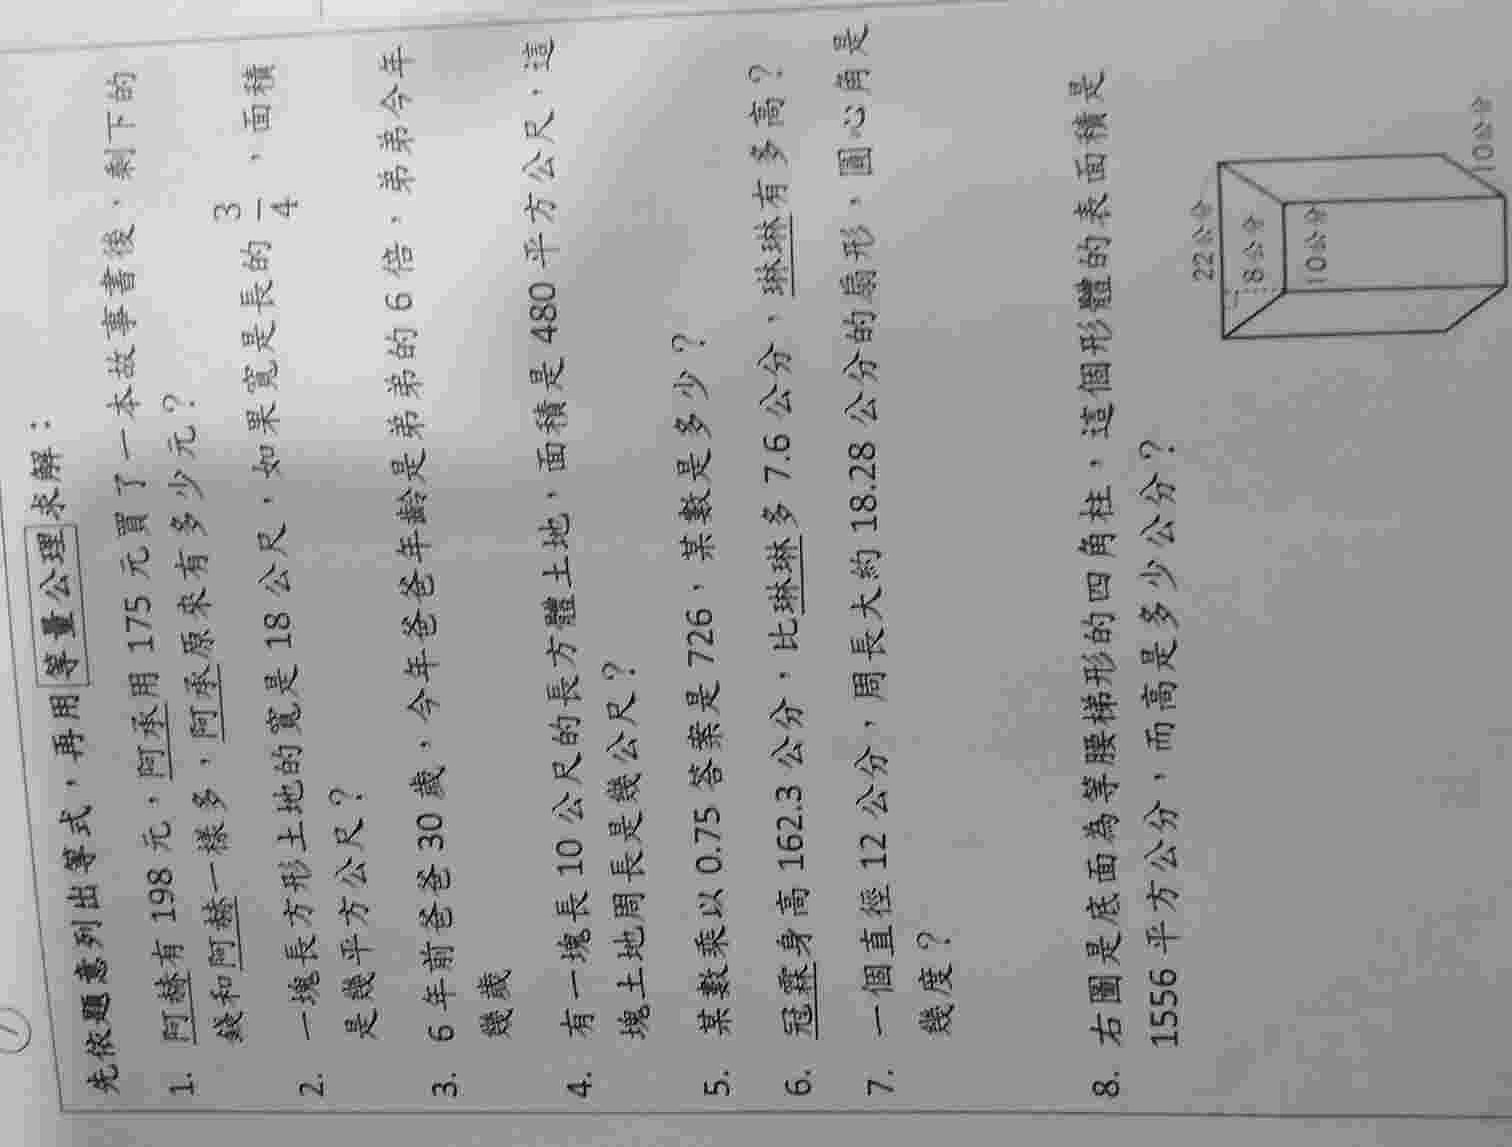 先依題意列出等式，再用等量公理求解：
1. 阿赫有 198 元，阿承用 175 元買了一本故事書後，剩下的
錢和阿赫一樣多，阿承原來有多少元？
2. 一塊長方形土地的寬是 18 公尺，如果寬是長的 3/4，面積
是幾平方公尺？
3. 6 年前爸爸 30 歲，今年爸爸年齡是弟弟的 6 倍，弟弟今年
幾歲
4. 有一塊長 10 公尺的長方體土地，面積是 480 平方公尺，這
塊土地周長是幾公尺？
5. 某數乘以 0.75 答案是 726，某數是多少？
6. 冠霖身高 162.3 公分，比琳琳多 7.6 公分，琳琳有多高？
7. 一個直徑 12 公分，周長大約 18.28 公分的扇形，圓心角是
幾度？
8. 右圖是底面為等腰梯形的四角柱，這個形體的表面積是
1556 平方公分，而高是多少公分？
22公分
8公分
10公分
10公分